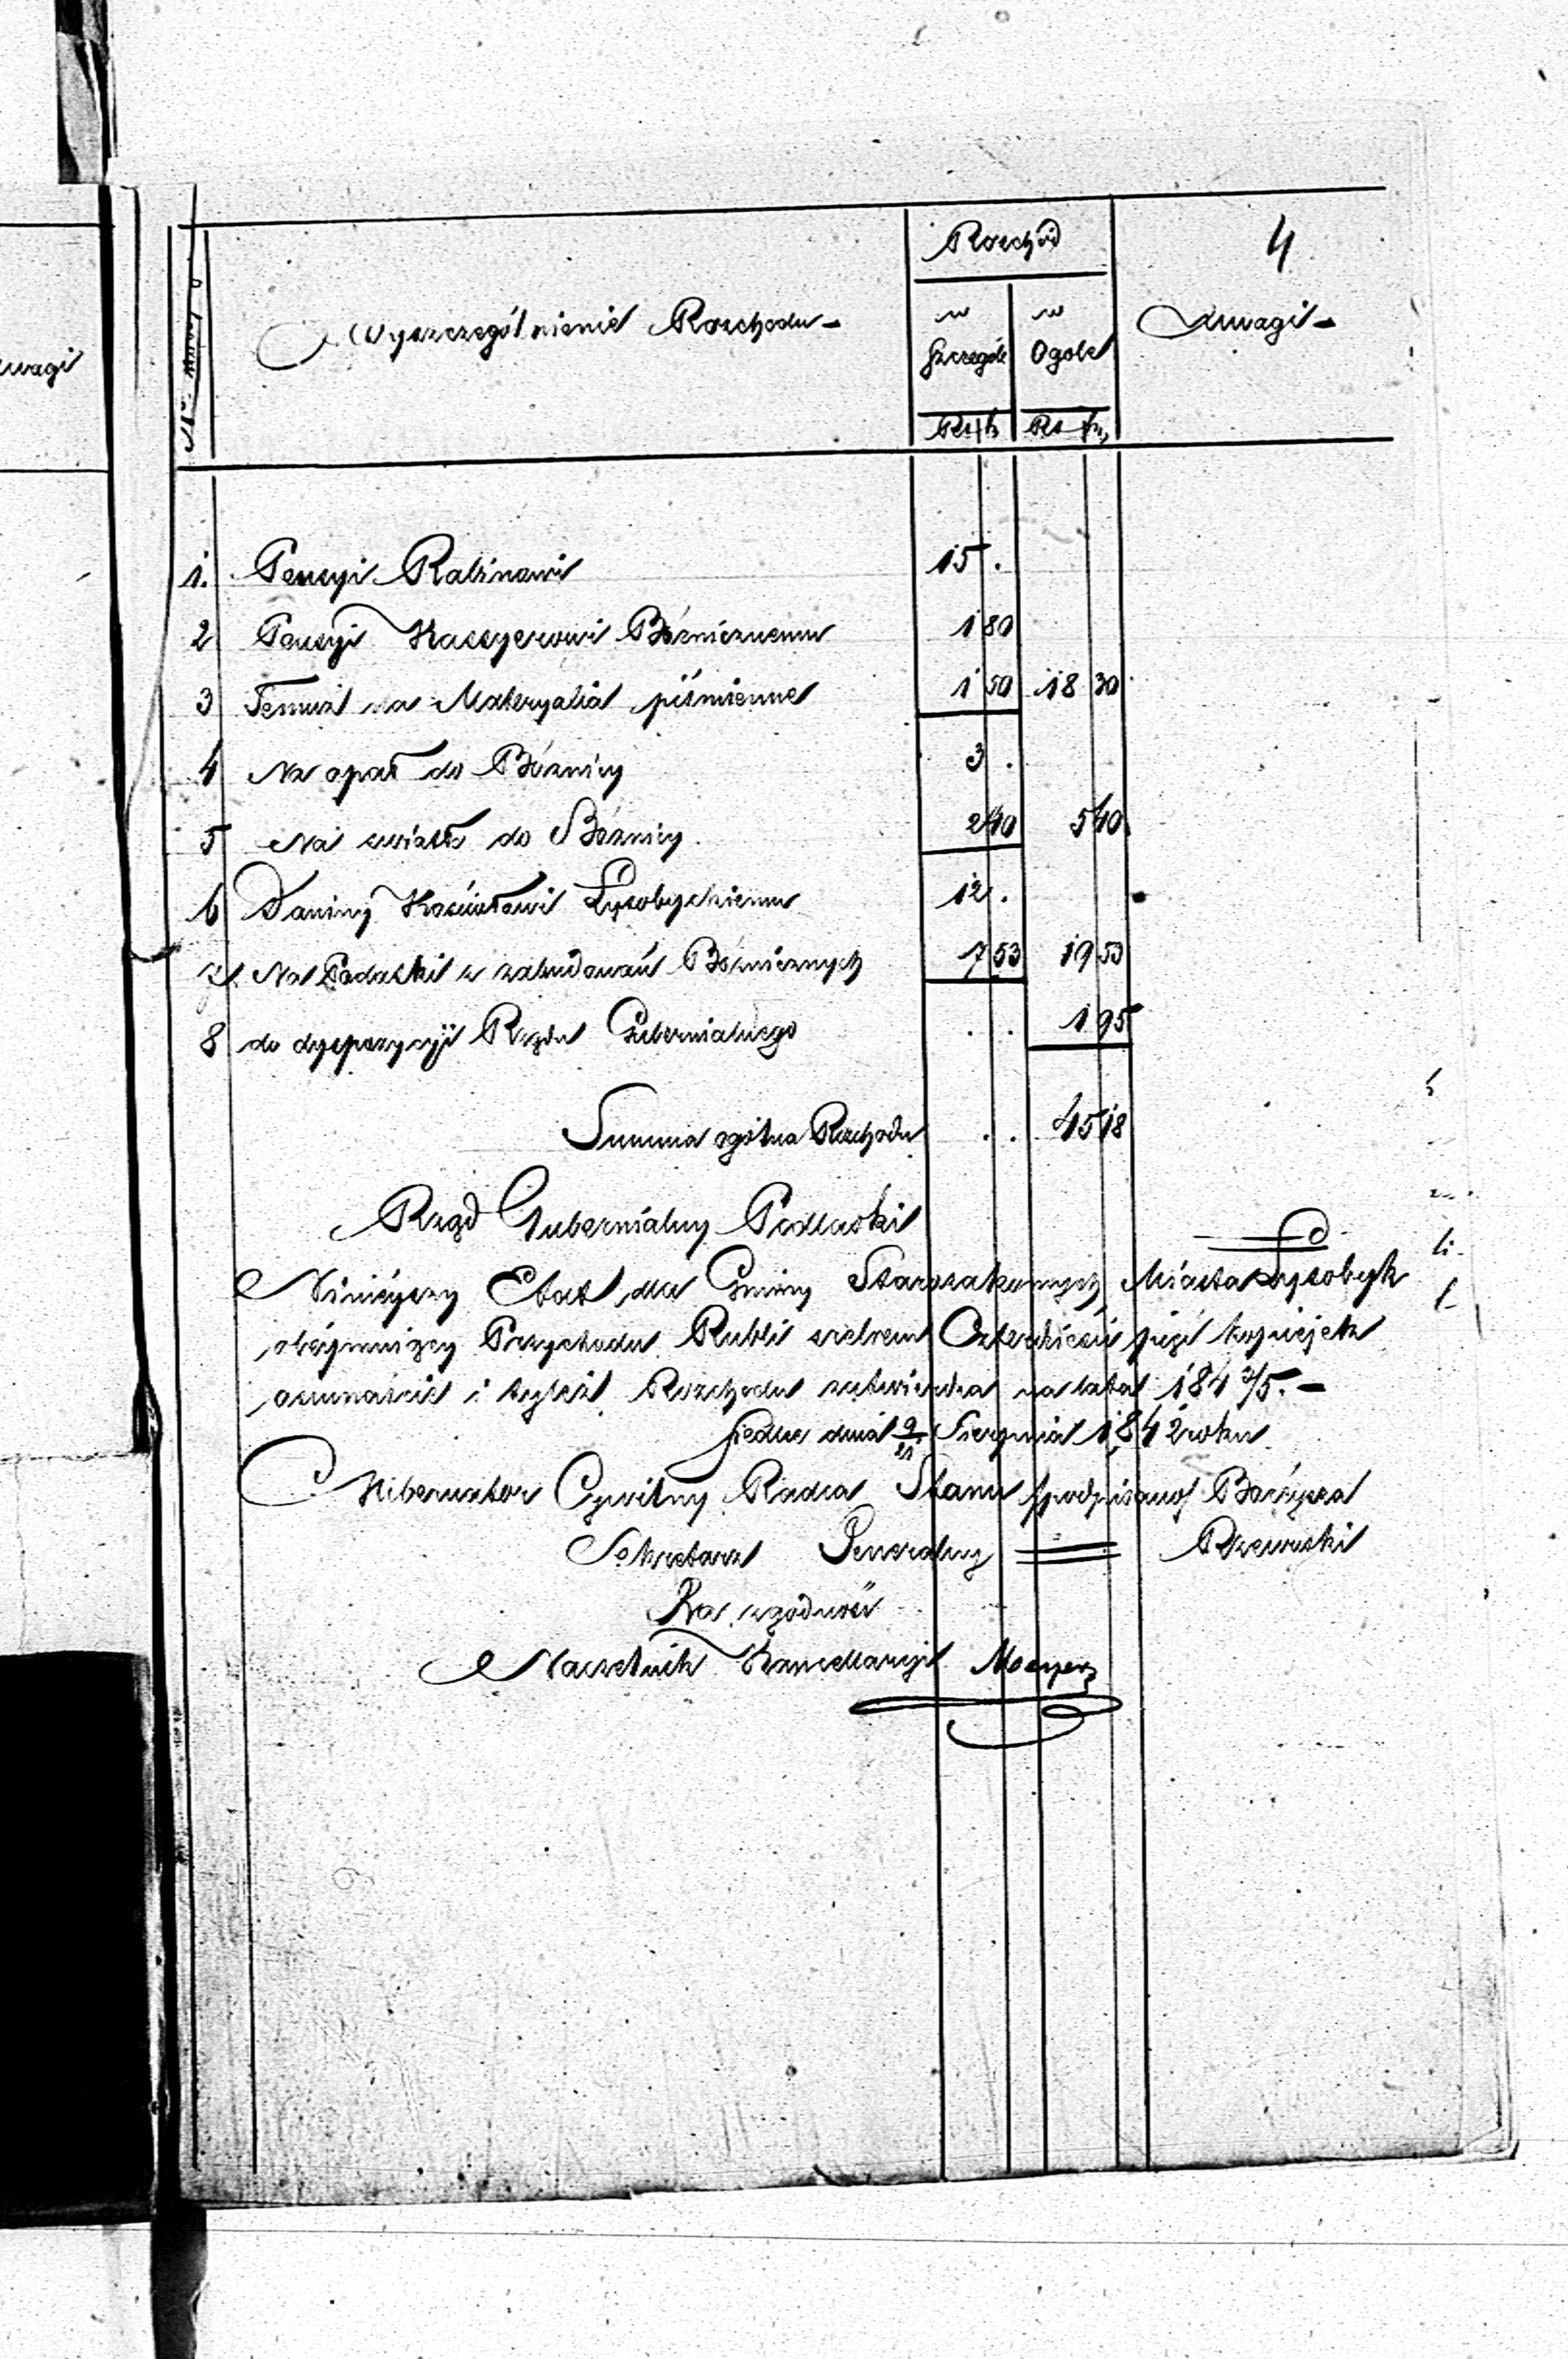 4
Rozchód
Wyszczególnienie Rozchodu -
w Szczególe
w Ogole
Uwagi -
uwagi
Rs k
Rs k
1. Pensyi Rabinowi 15 .
2 Pensyi Kassyerowi Bóżnicznemu 1 80
3 Temuż na Materyalia piśmienne 1 50 18 30
4 Na opał do Bóżnicy 3 .
5 Na światło do Bóżnicy. 2 40 5 40
6 Daniny Kościołowi Łysobyckiemu 12 .
7 Na Podatki z zabudowań Bóżnicznych 7 53 19 53
8 do dyspozycyi Rządu Gubernialnego . . 1 95
Summa ogólna Rozchodu . . 45 18
Rząd Gubernialny Podlaski
Niniejszy Etat dla Gminy Starozakonnych Miasta Łysobyk
obejmujący Przychodu Rubli srebrem Czterdzieści pięć kopiejek
osiemnaście i tyleż Rozchodu zatwierdza na lata 184 3/5. -
Siedlce dnia 9/21 Sierpnia 1842 roku
Gubernator Cywilny Radca Stanu /podpisano/
Sekretarz Generalny = Rzewuski
Za zgodność
Naczelnik Kancellaryi